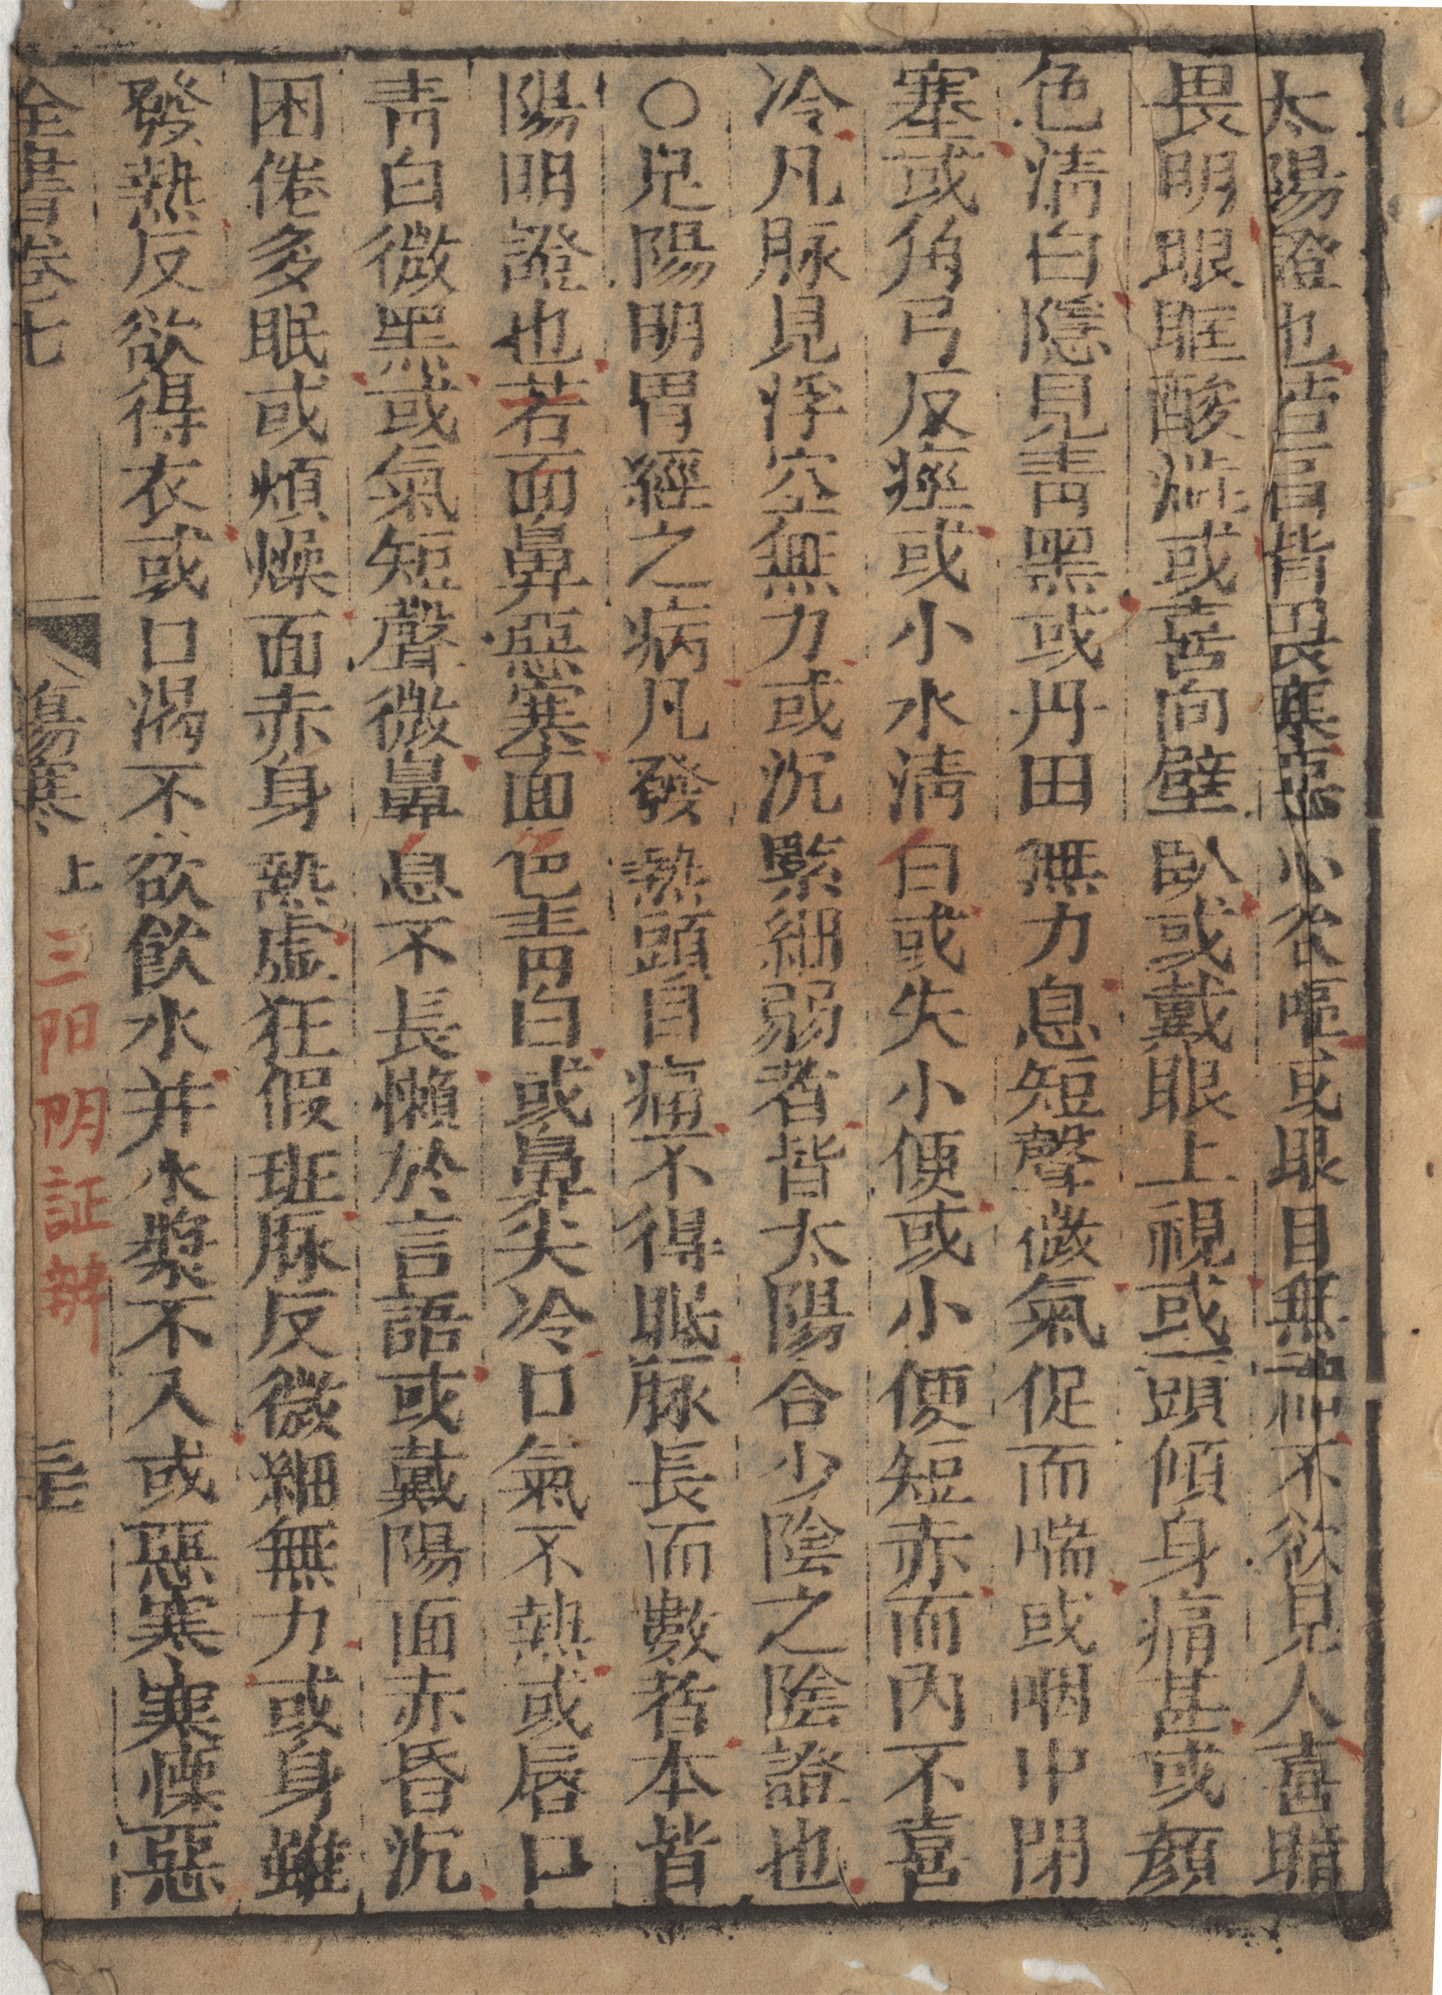 太陽證也若肩背畏寒惡心欲嘔或眼目無神不欲見人喜暗
畏明眼眶酸澁或喜向壁臥或戴眼上視或頭傾身痛甚或顏
色淸白隱見靑黑或丹田無力息短聲微氣促而喘或咽中閉
塞或角弓反痙或小水淸白或失小便或小便短赤而內不喜
冷凡脉見浮空無力或沉緊細弱者皆太陽合少陰之陰證也
○足陽明胃經之病凡發熱頭目痛不得眠脉長而數者本皆
陽明證也若面鼻惡寒面色靑白或鼻尖冷口氣不熱或唇口
靑白微黑或氣短聲微鼻息不長懶於言語或戴陽面赤昏沉
困倦多眠或煩燥面赤身熱虛狂假班脉反微細無力或身雖
發熱反欲得衣或口渴不欲飮水并水漿不入或惡寒寒慄惡
全書卷七
傷寒上
三阳明証辨